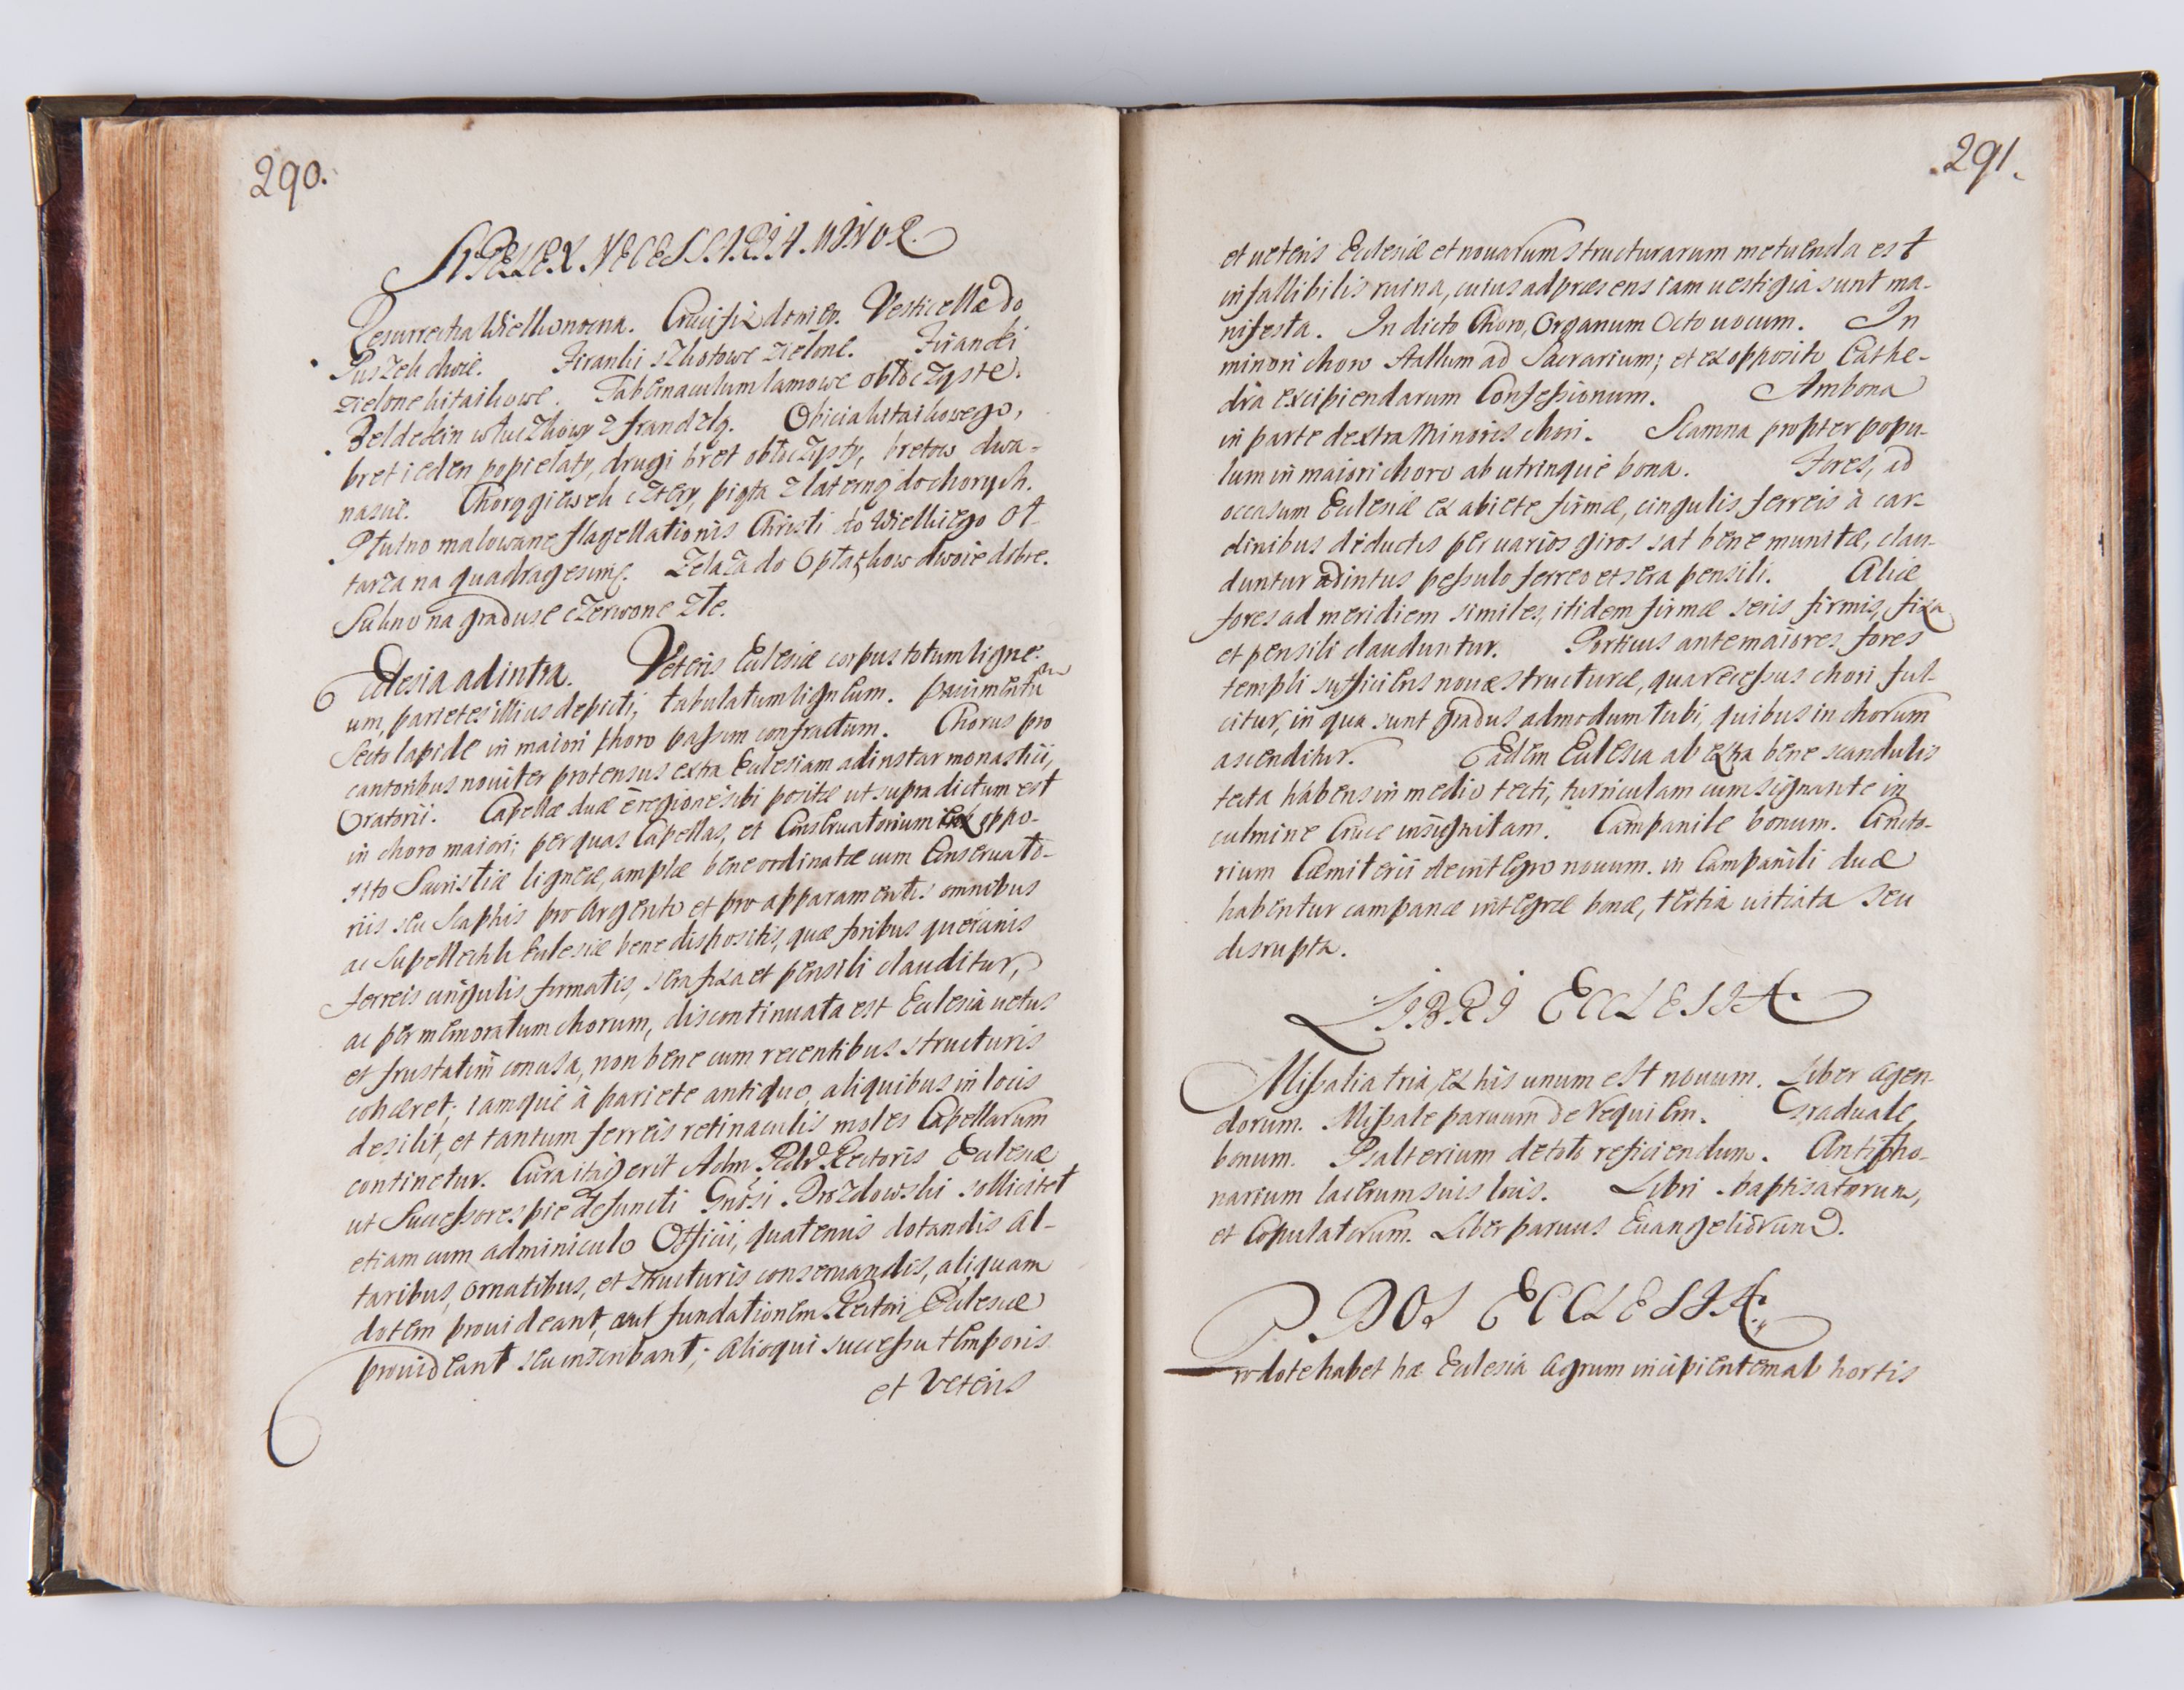 290.
SUPELLEX NECESSARIA MINOR.
Resurrectia Wielkonocna. Crucifix drniep. Vesticella do
Puszek dwie. Firanki szkotowe zielone. Firanki
zielone kitaikowe. Tabernaculum lamowe obłoczyste.
Beldekin włuczkowy z frandzlą. Obicia kitaikowego,
bret ieden popielaty, drugi bret obłoczysty, bretow dwa-
nascie. Chorągiewek cztery, piąta z laterną do chorych.
Płutno malowane flagellationis Christi do Wielkiego Ot-
tarza na quadragesimę. Zelaza do Opłatkow dwoie dobre.
Sukno na graduse czerwone złe.
Ecclesia ad intra. Veteris Ecclesiæ corpus totum ligne-
um, parietes illius depicti, tabulatum ligneum. Pauimentum
Secto lapide in maiori choro passim confractum. Chorus pro
cantoribus nouiter protensus extra Ecclesiam ad instar monastici,
Oratorii. Capellæ duæ è regione sibi positæ ut supra dictum est
in choro maiori; per quas Capellas, et Conseruatorium ex oppo-
sito Sacristiæ ligneæ, amplæ bene ordinatæ cum Conseruato-
riis seu Scaphis pro Argento et pro apparamentis omnibus
ac Supellectili Ecclesiæ bene dispositis, quæ foribus quercinis
ferreis cingulis firmatis, sera fixa et pensili clauditur,
ac per memoratum chorum, discontinuata est Ecclesia uetus
et frustatim concisa, non bene cum recentibus structuris
cohæret; iamque à pariete antiquo, aliquibus in locis
desilit, et tantum ferreis retinaculis moles Capellarum
continetur. Cura itaq erit Adm Rdi Rectoris Ecclesiæ
ut Successores pie defuncti Gnosi Drozdowski sollicitet
etiam cum adminiculo Officii, quatenus dotandis Al-
taribus, ornatibus, et structuris conseruandis, aliquam
dotem prouideant, aut fundationem Rectori Ecclesiæ
prouideant seu inscribant; Alioqui successu temporis
et Veteris
291.
et ueteris Ecclesiæ et nouarum structurarum metuenda est
infallibilis ruina, cuius ad præsens iam uestigia sunt ma-
nifesta. In dicto Choro, Organum Octo uocum. In
minori choro stallum ad Sacrarium; et ex opposito Cathe-
dra excipiendarum Confessionum. Ambona
in parte dextra Minoris chori. Scamna propter popu-
lum in maiori choro ab utrinque bona. Fores, ad
occasum Ecclesiæ ex abiete firmæ, cingulis ferreis à car-
dinibus deductis per uarios giros sat bene munitæ, clau-
duntur ad intus pessulo ferreo et sera pensili. Aliæ
fores ad meridiem similes, itidem firmæ seris firmis, fixa
et pensili clauduntur. Porticus ante maiores fores
templi sufficiens nouæ structuræ, qua recessus chori ful-
citur, in qua sunt gradus admodum tubi, quibus in chorum
ascenditur. Eadem Ecclesia ab extra bene scandulis
tecta habens in medio tecti, turriculam cum signante in
culmine Cruce insignitam. Campanile bonum. Cincto-
rium Cæmiterii de integro nouum. in Campanili duæ
habentur campanæ integræ bonæ, tertia uitiata seu
disrupta.
LIBRI ECCLESIÆ.
Missalia tria, ex his unum est nouum. Liber Agen-
dorum. Missale paruum de Requiem. Graduale
bonum. Psalterium de toto reficiendum. Antipho-
narium lacerum suis locis. Libri baptisatorum,
et Copulatorum. Liber paruus Euangeliorum.
DOS ECCLESIÆ.
Pro dote habet hæc Ecclesia Agrum incipientem ab hortis